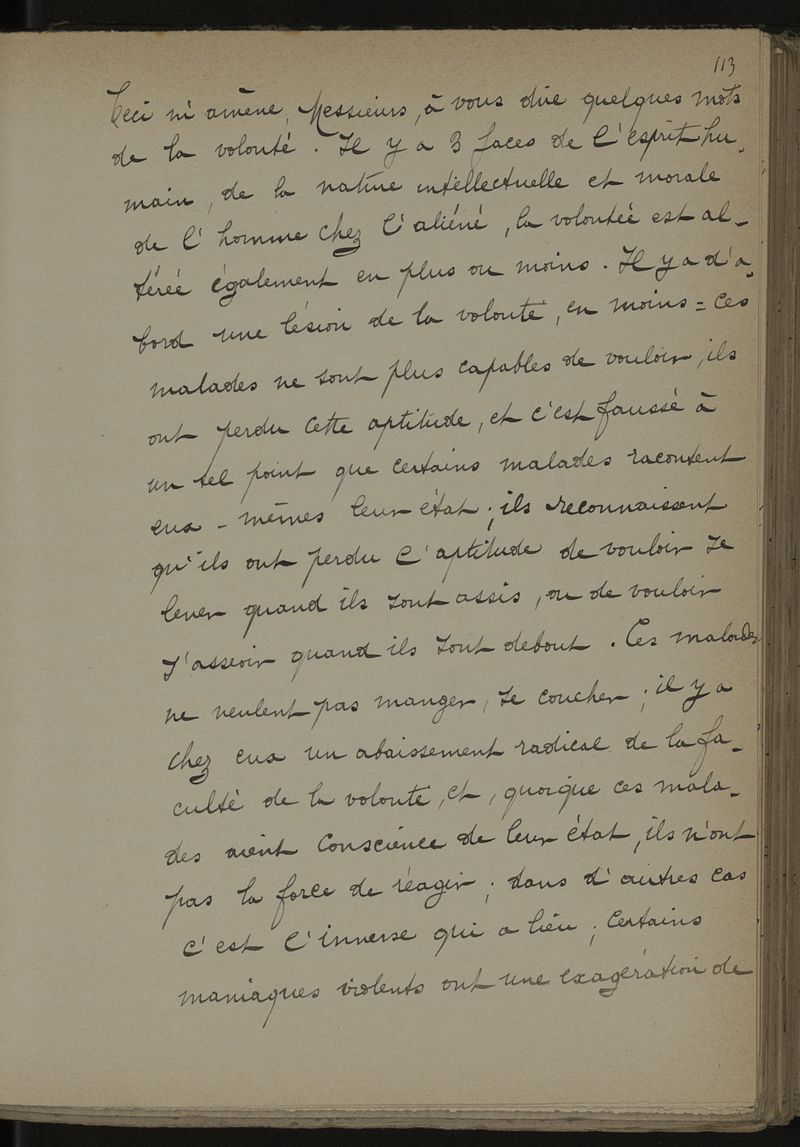 113
Ceci m'amène, Messieurs, à vous dire quelques mots
de la volonté. Il y a 3 faces de l'esprit hu-
main, de la nature intellectuelle et morale
de l'homme chez l'aliéné, la volontée est al-
térée également en plus ou moins. Il y a d'a-
bord une lésion de la volonté, en moins = ces
malades ne sont plus capables de vouloir, ils
ont perdu cette aptitude, et c'est faussé à
un tel point que certains malades racontent
eux-mêmes leur état; ils reconnaissent
qu'ils ont perdu l'aptitude de vouloir se
lever quand ils sont assis, ou de vouloir
s'asseoir quand ils sont debout. Ces malades
ne veulent pas manger, se coucher; il y a
chez eux un abaissement radical de la fa-
culté de la volonté, et, quoique ces mala-
des aient conscience de leur état, ils n'ont
pas la force de réagir; dans d'autres cas
c'est l'inverse qui a lieu; certains
maniaques violents ont une exagération de